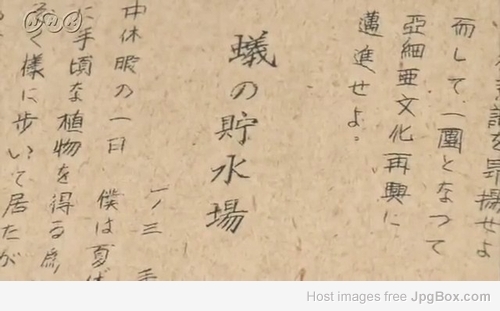 揚せよ
而して一團となつて
亞細亜文化再興に
邁進せよ。
蟻の貯水場
一ノ三
中休暇の一日 僕は
に手頃な植物を得る為
く様に歩いて居たが
NHK
Host images free JpgBox.com